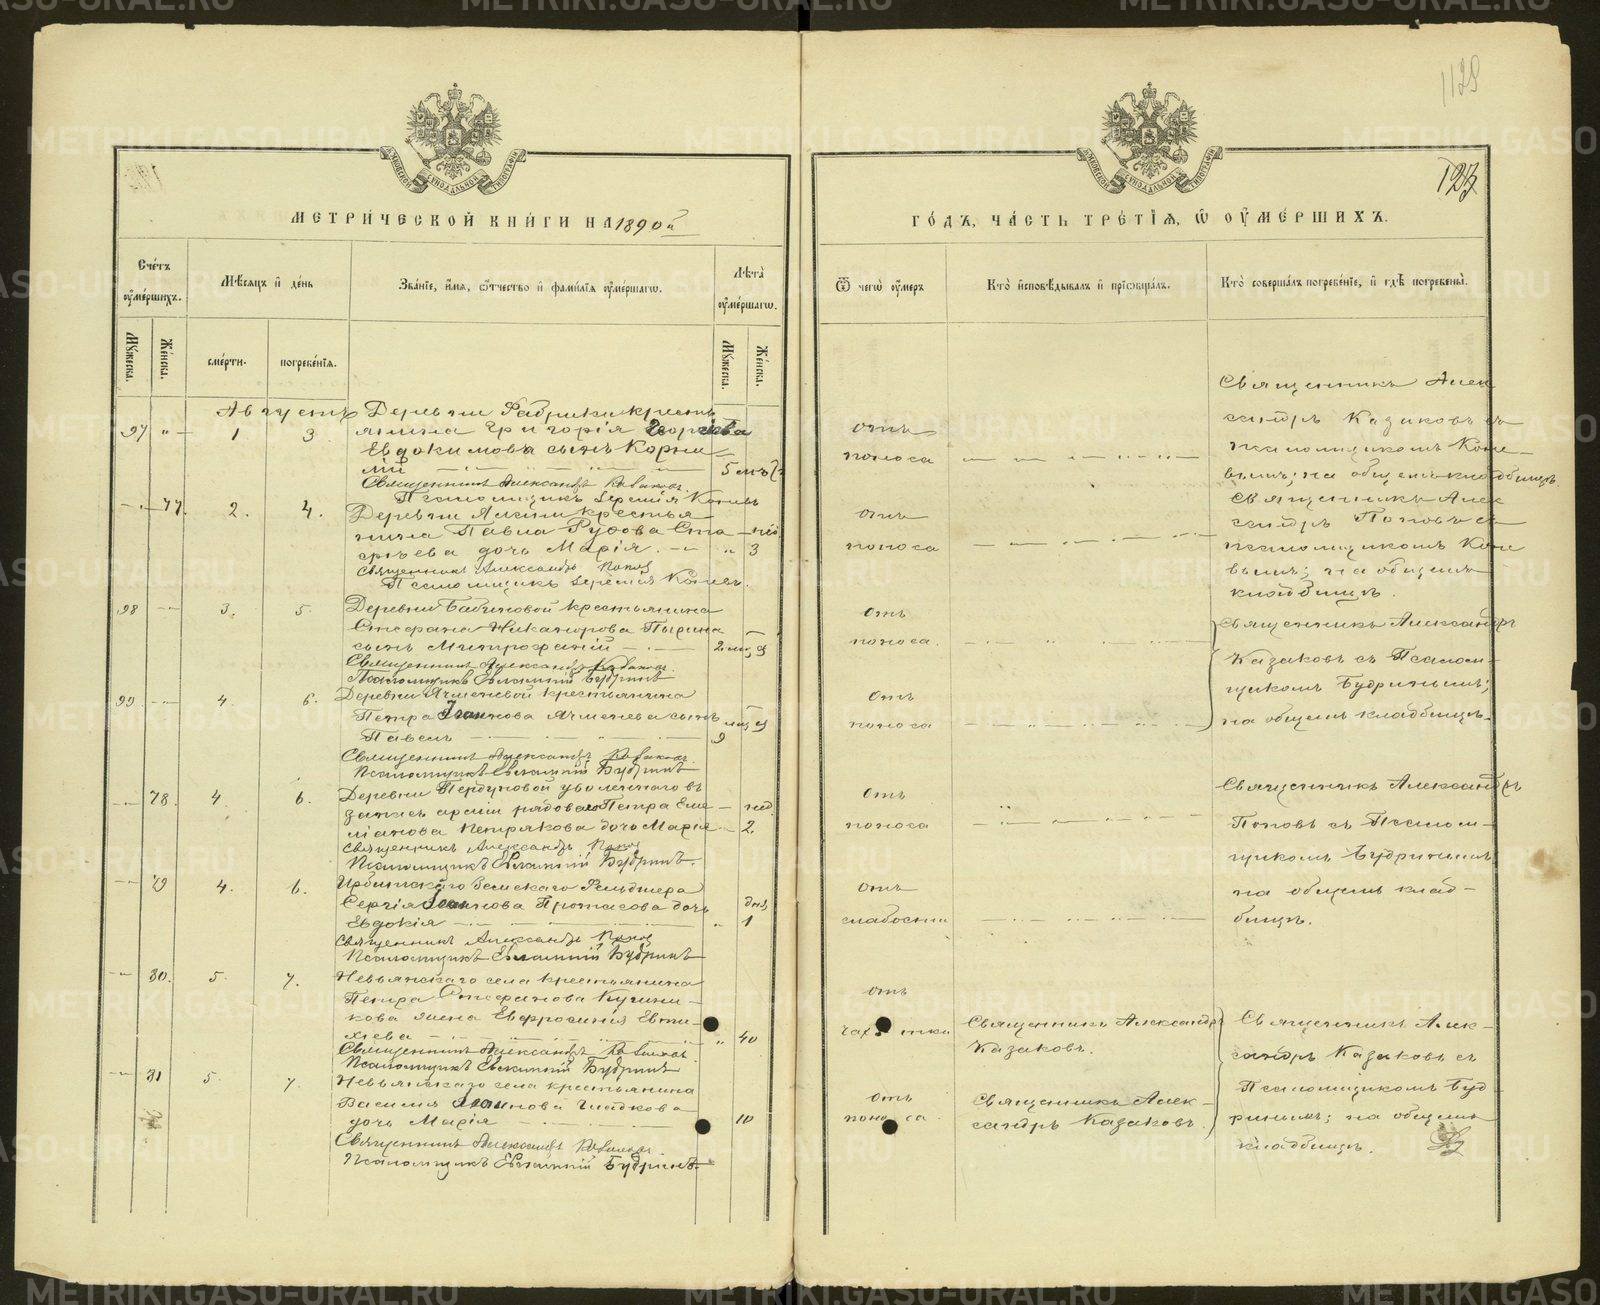 1129
123
МЕТРИ́ЧЕСКОЙ КНИ́ГИ НА 1890й
ГО́ДЪ, ЧА́СТЬ ТРЕ́ТІѦ, Ѡ ОУМЕ́РШИХЪ.
Сче́тъ оуме́ршихъ.
Мѣ́сяцъ и́ де́нь
Зва́ніе, и́мя, ѻ҆́тчество и́ фами́лія оуме́ршагѡ.
Лѣ́та оуме́ршагѡ.
Ѿ чегѡ̀ оу́меръ
Кто̀ и҆сповѣ́дывалъ и́ прїѡбща́лъ.
Кто̀ соверша́лъ погребе́ніе, и́ гдѣ̀ погребены̀.
Му́жеска.
Же́нска.
сме́рти.
погребе́нія.
Му́жеска.
Же́нска.
Августъ
97 " 1 3
Деревни Фабрики кресть
янина Григорія Георгіева
Евдокимова сынъ Корни
лій
5 мѣ
Священникъ Александръ Казаковъ.
Псаломщикъ Іеремія Коневъ
отъ
поноса
Священникъ Алек
сандръ Казаковъ съ
псаломщикомъ Коне
вымъ; на общемъ кладбищѣ.
77. 2. 4.
Деревни крестья
нина Павла Руфова Ста
дочь Марія
3
Священникъ Александръ Поповъ
Псаломщикъ Іеремія Коневъ.
отъ
поноса
Священникъ Алек
сандръ Поповъ съ
псаломщикомъ Коне
вымъ; на общемъ
кладбищѣ.
98 3. 5.
Деревни Бабиновой крестьянина
Стефана Никанорова Пырина
сынъ Митрофаній
2
Священникъ Александръ Казаковъ.
Псаломщикъ Евлампій Будринъ
отъ
поноса.
Священникъ Александръ
Казаковъ съ Псалом-
щикомъ Будринымъ;
на общемъ кладбищѣ.
99 4. 6.
Деревни Ячменевой крестьянина
Петра Іоаннова Ячменева сынъ
Павелъ
9
Священникъ Александръ Казаковъ.
Псаломщикъ Евлампій Будринъ
отъ
поноса
78. 4. 6.
Деревни уволеннаго въ
запасъ арміи рядоваго Петра Еме
ліанова Петрякова дочь Марія
нед.
2.
Священникъ Александръ Поповъ
Псаломщикъ Евлампій Будринъ.
отъ
поноса
Священникъ Александръ
Поповъ съ Псалом-
щикомъ Будринымъ
на общемъ клад-
бищѣ.
79 4. 6.
Ирбитскаго Земскаго Фельдшера
Сергія Іоаннова Протасова дочь
Евдокія
дня
1
Священникъ Александръ Поповъ
Псаломщикъ Евлампій Будринъ
отъ
слабости
80. 5. 7.
Невьянскаго села крестьянина
Петра Стефанова
кова жена Евфросинія Евти-
хіева
40
Священникъ Александръ Казаковъ.
Псаломщикъ Евлампій Будринъ
отъ
чахотки
Священникъ Александръ
Казаковъ.
Священникъ Алек-
сандръ Казаковъ съ
Псаломщикомъ Буд-
ринымъ; на общемъ
кладбищѣ.
81 5. 7.
Невьянскаго села крестьянина
Василія Іоаннова Гладкова
дочь Марія
10
Священникъ Александръ Казаковъ.
Псаломщикъ Евлампій Будринъ
отъ
поноса.
Священникъ Алек-
сандръ Казаковъ.
METRIKI.GASO-URAL.RU